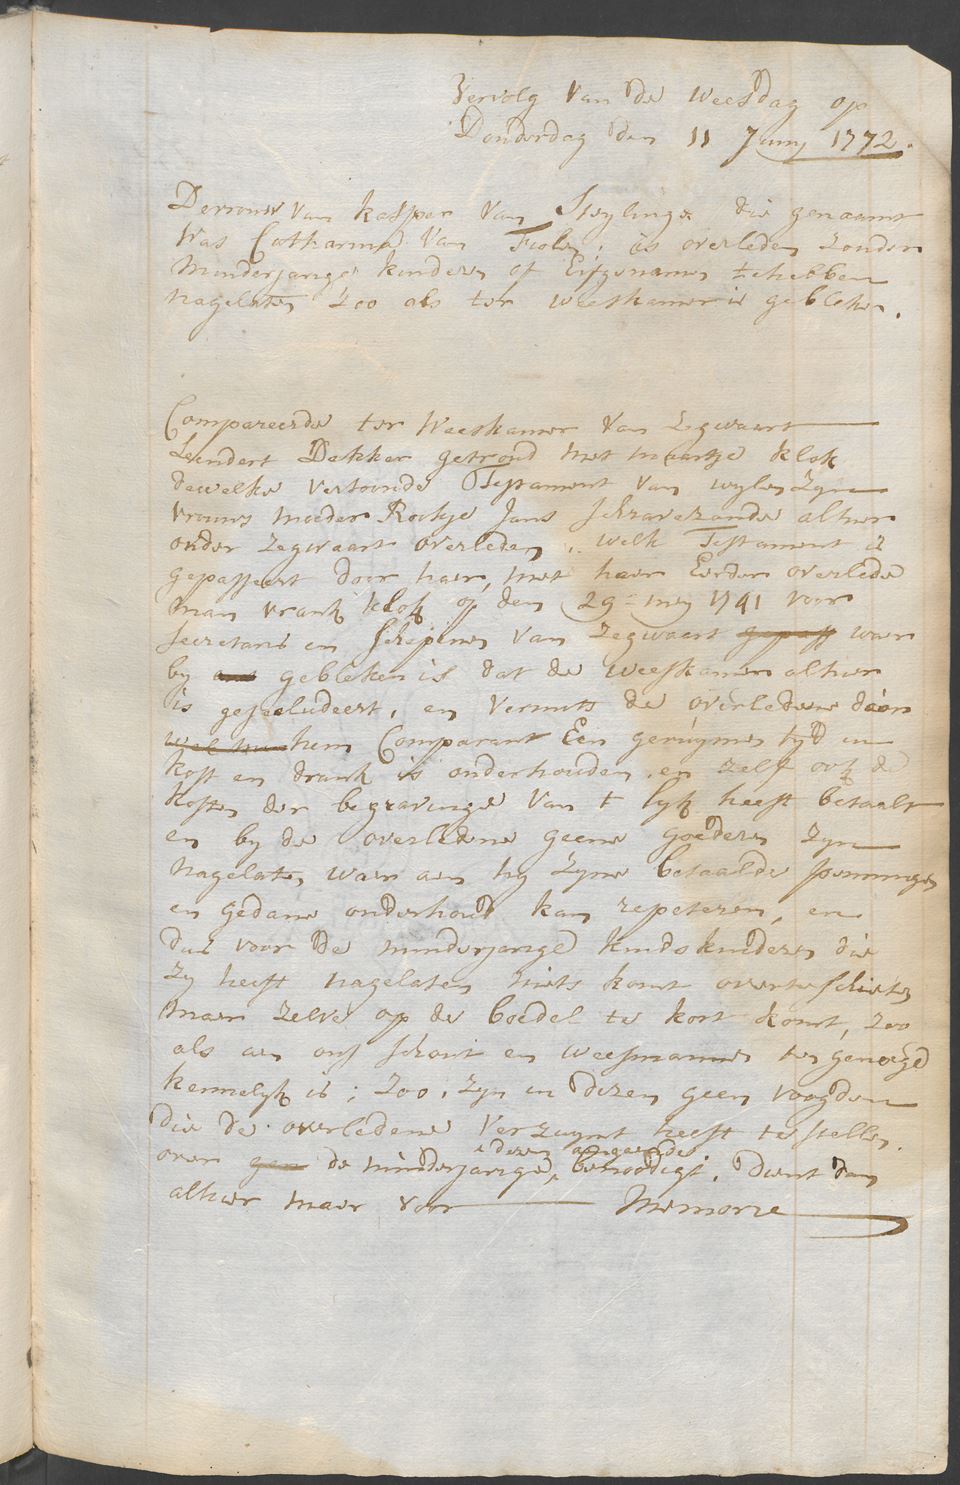 Vervolg van de weesdag op
Donderdag den 11 Juny 1772.
De vrouw van kasper van Steylinge die genaamt
was Catharina van Fiolen, is overleden zonder
minderjarige kinderen of Erfgenamen te hebben
nagelaten zoo als ter weeskamer is gebleken.
Compareerde ter Weeskamer van Zegwaart
Leendert Dekker getroud met maartje klok
dewelke vertoonde Testament van wylen zyn
vrouws moeder Rookje Jans schravezande alhier
onder zegwaart overleden, welk Testament is
gepasseert door haer, met haer Eerder overlede
man vrank klok op den 29=mey 1741 voor
secretaris en schepenen van Zegwaart gepass waer
by gebleken is dat de weeskamer alhier
is geseeludeert, en vermits de overledene door
wel hem Comparant Een geruymen tyd in
kost en drank is onderhouden, en zelf ook de
kosten der begravinge van t lyk heeft betaalt
en by de overledene geene goederen zyn
nagelaten waer aen hy zyne betaalde penningen
en gedane onderhoud kan repeteren, en
dus voor de minderjarige kindskinderen die
zy heeft nagelaten niets komt overteschieten
maer zelve op de boedel te kort komt, zoo
als aen ons schout en weesmannen ter genoege
kennelyk is; zoo, zyn in dezen geen voogden
die de overledene verzuymt heeft te stellen.
over de minderjarige, dezen aengaende benoodigt. dient dan
alhier maer voor Memorie